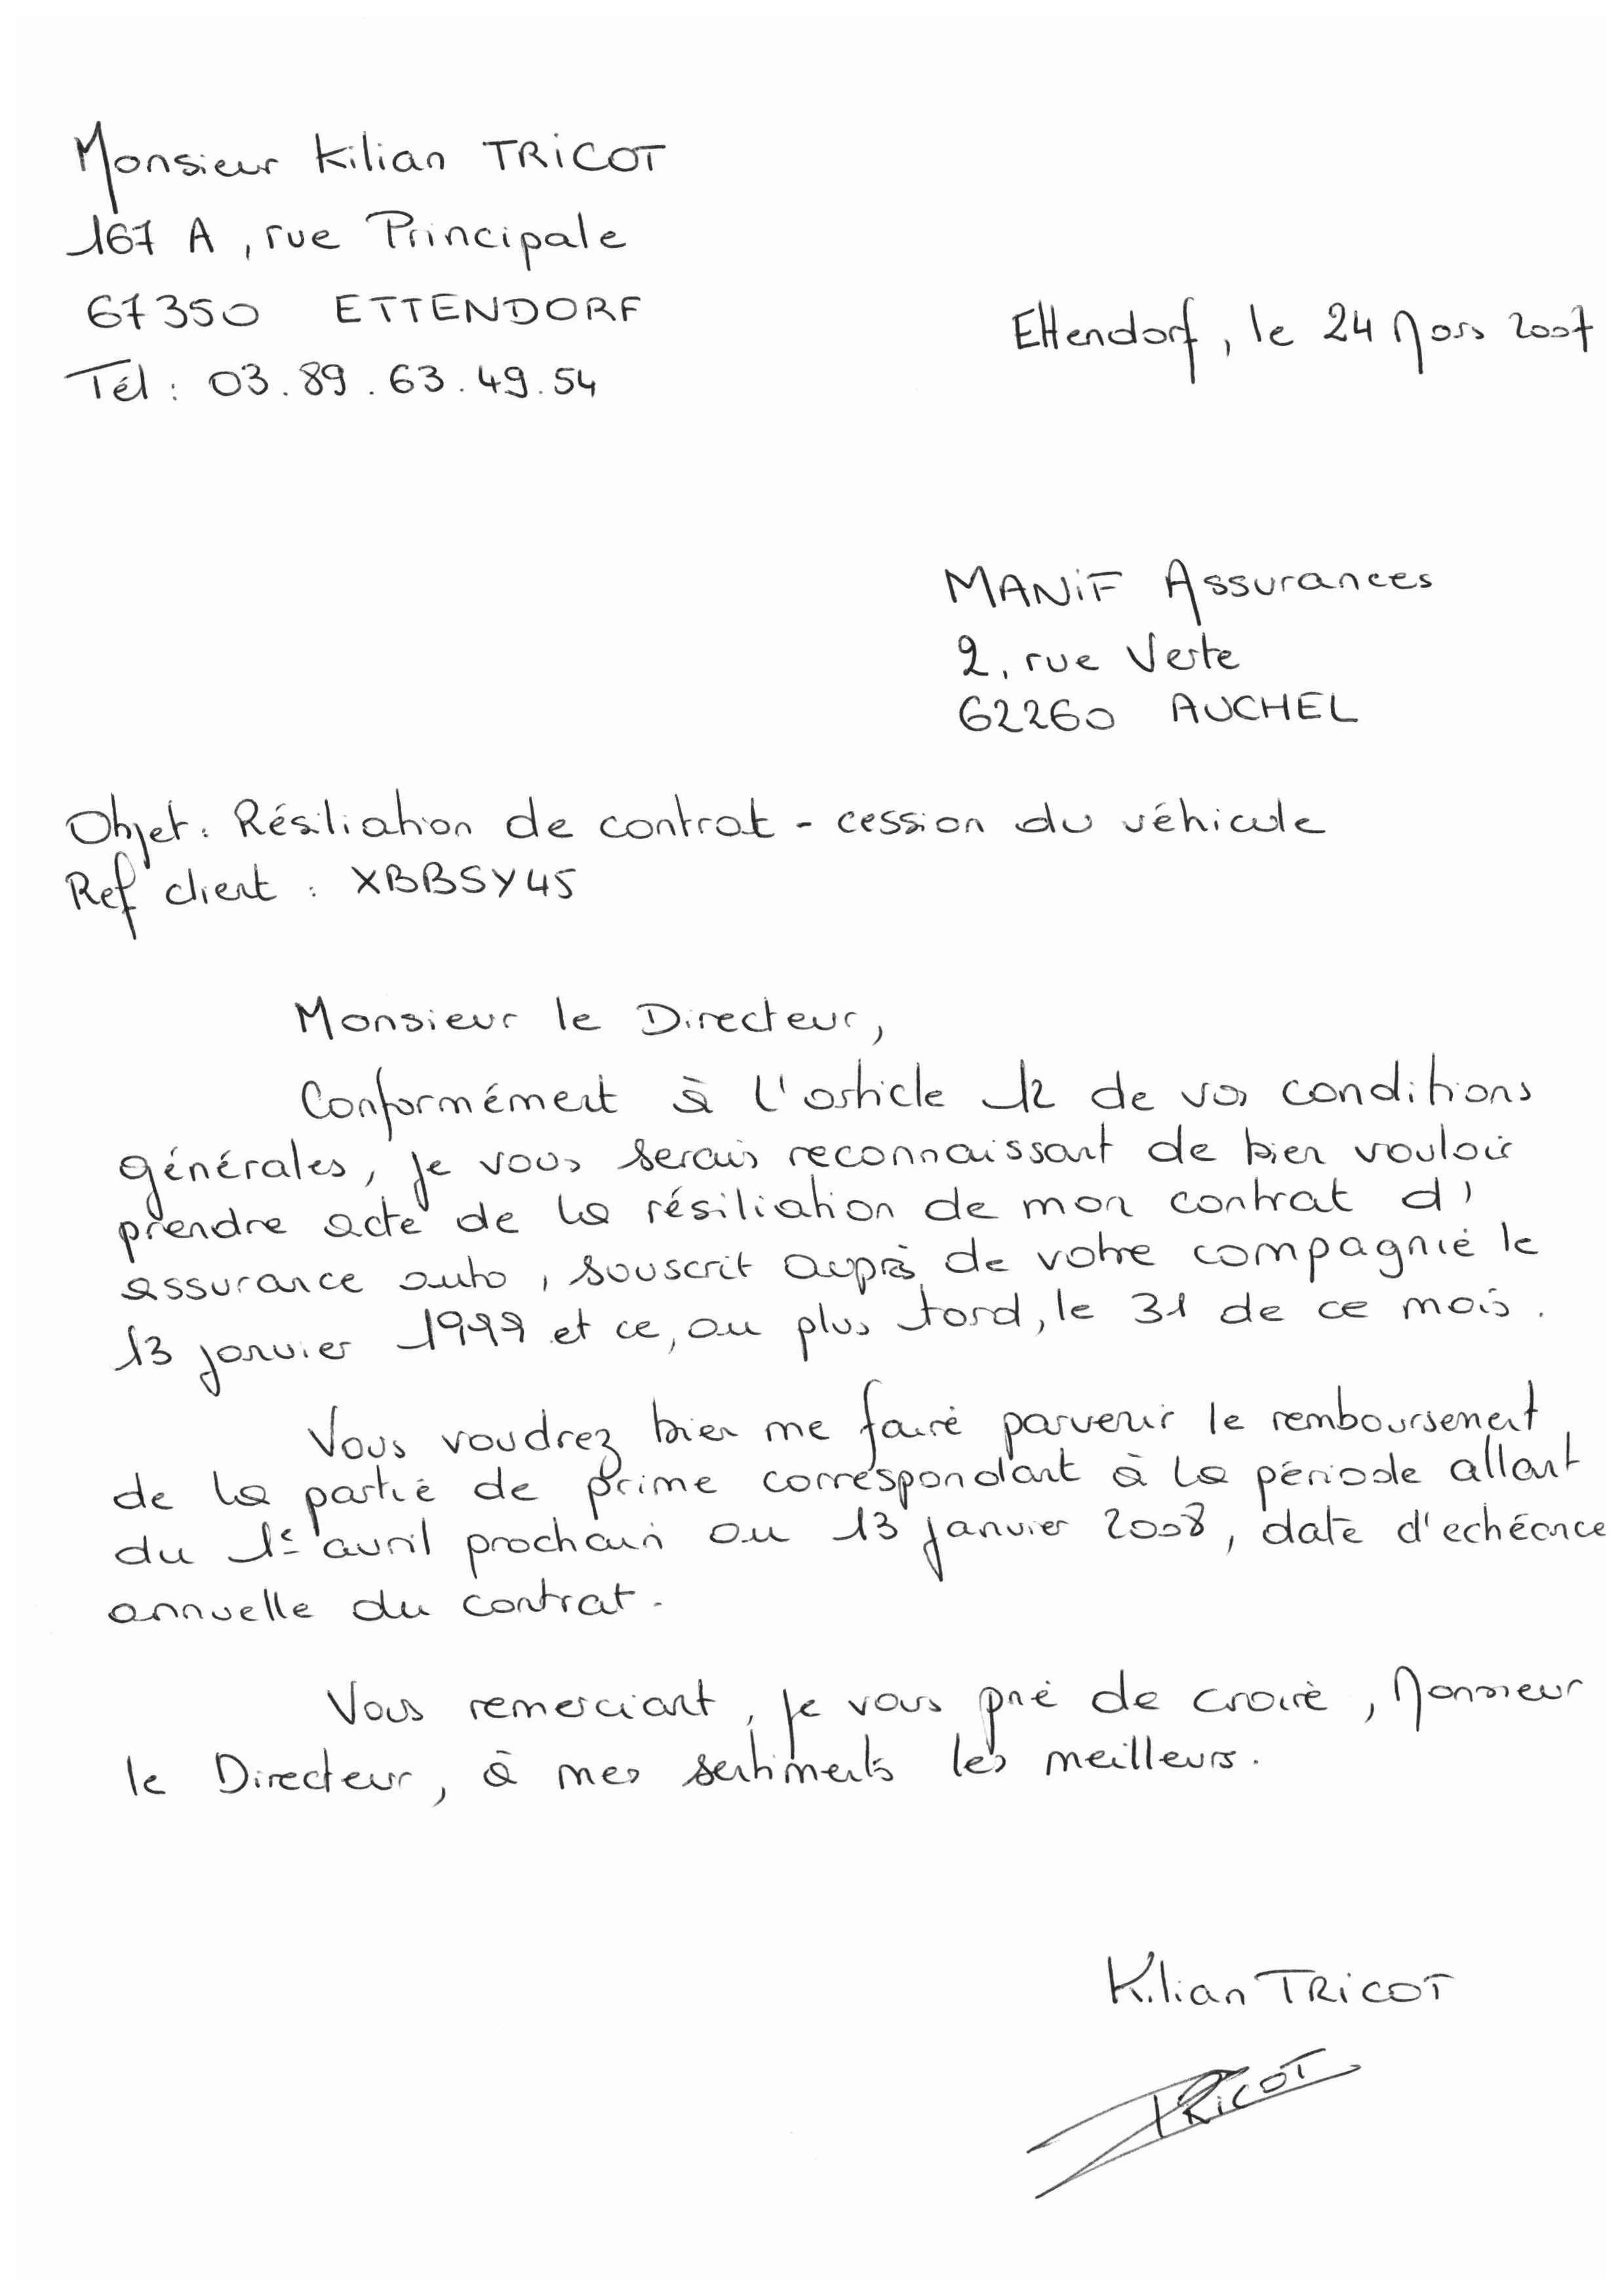 Monsieur Kilian TRICOT
167 A, rue Principale
67350 ETTENDORF
Tél : 03.89.63.49.54
Ettendorf, le 24 Mars 2007
MANIF Assurances
2, rue Verte
62260 AUCHEL
Objet : Résiliation de contrat - cession du véhicule
Ref client : XBBSY45
Monsieur le Directeur,
Conformément à l'article 12 de vos conditions
générales, je vous serais reconnaissant de bien vouloir
prendre acte de la résiliation de mon contrat d'
assurance auto, souscrit auprès de votre compagnie le
13 janvier 1999 et ce, au plus tard, le 31 de ce mois.
Vous voudrez bien me faire parvenir le remboursement
de la partie de prime correspondant à la période allant
du 1er avril prochain au 13 janvier 2008, date d'echéance
annuelle du contrat.
Vous remerciant, je vous prie de croire, Monsieur
le Directeur, à mes sentiments les meilleurs.
Kilian TRICOT
TRICOT